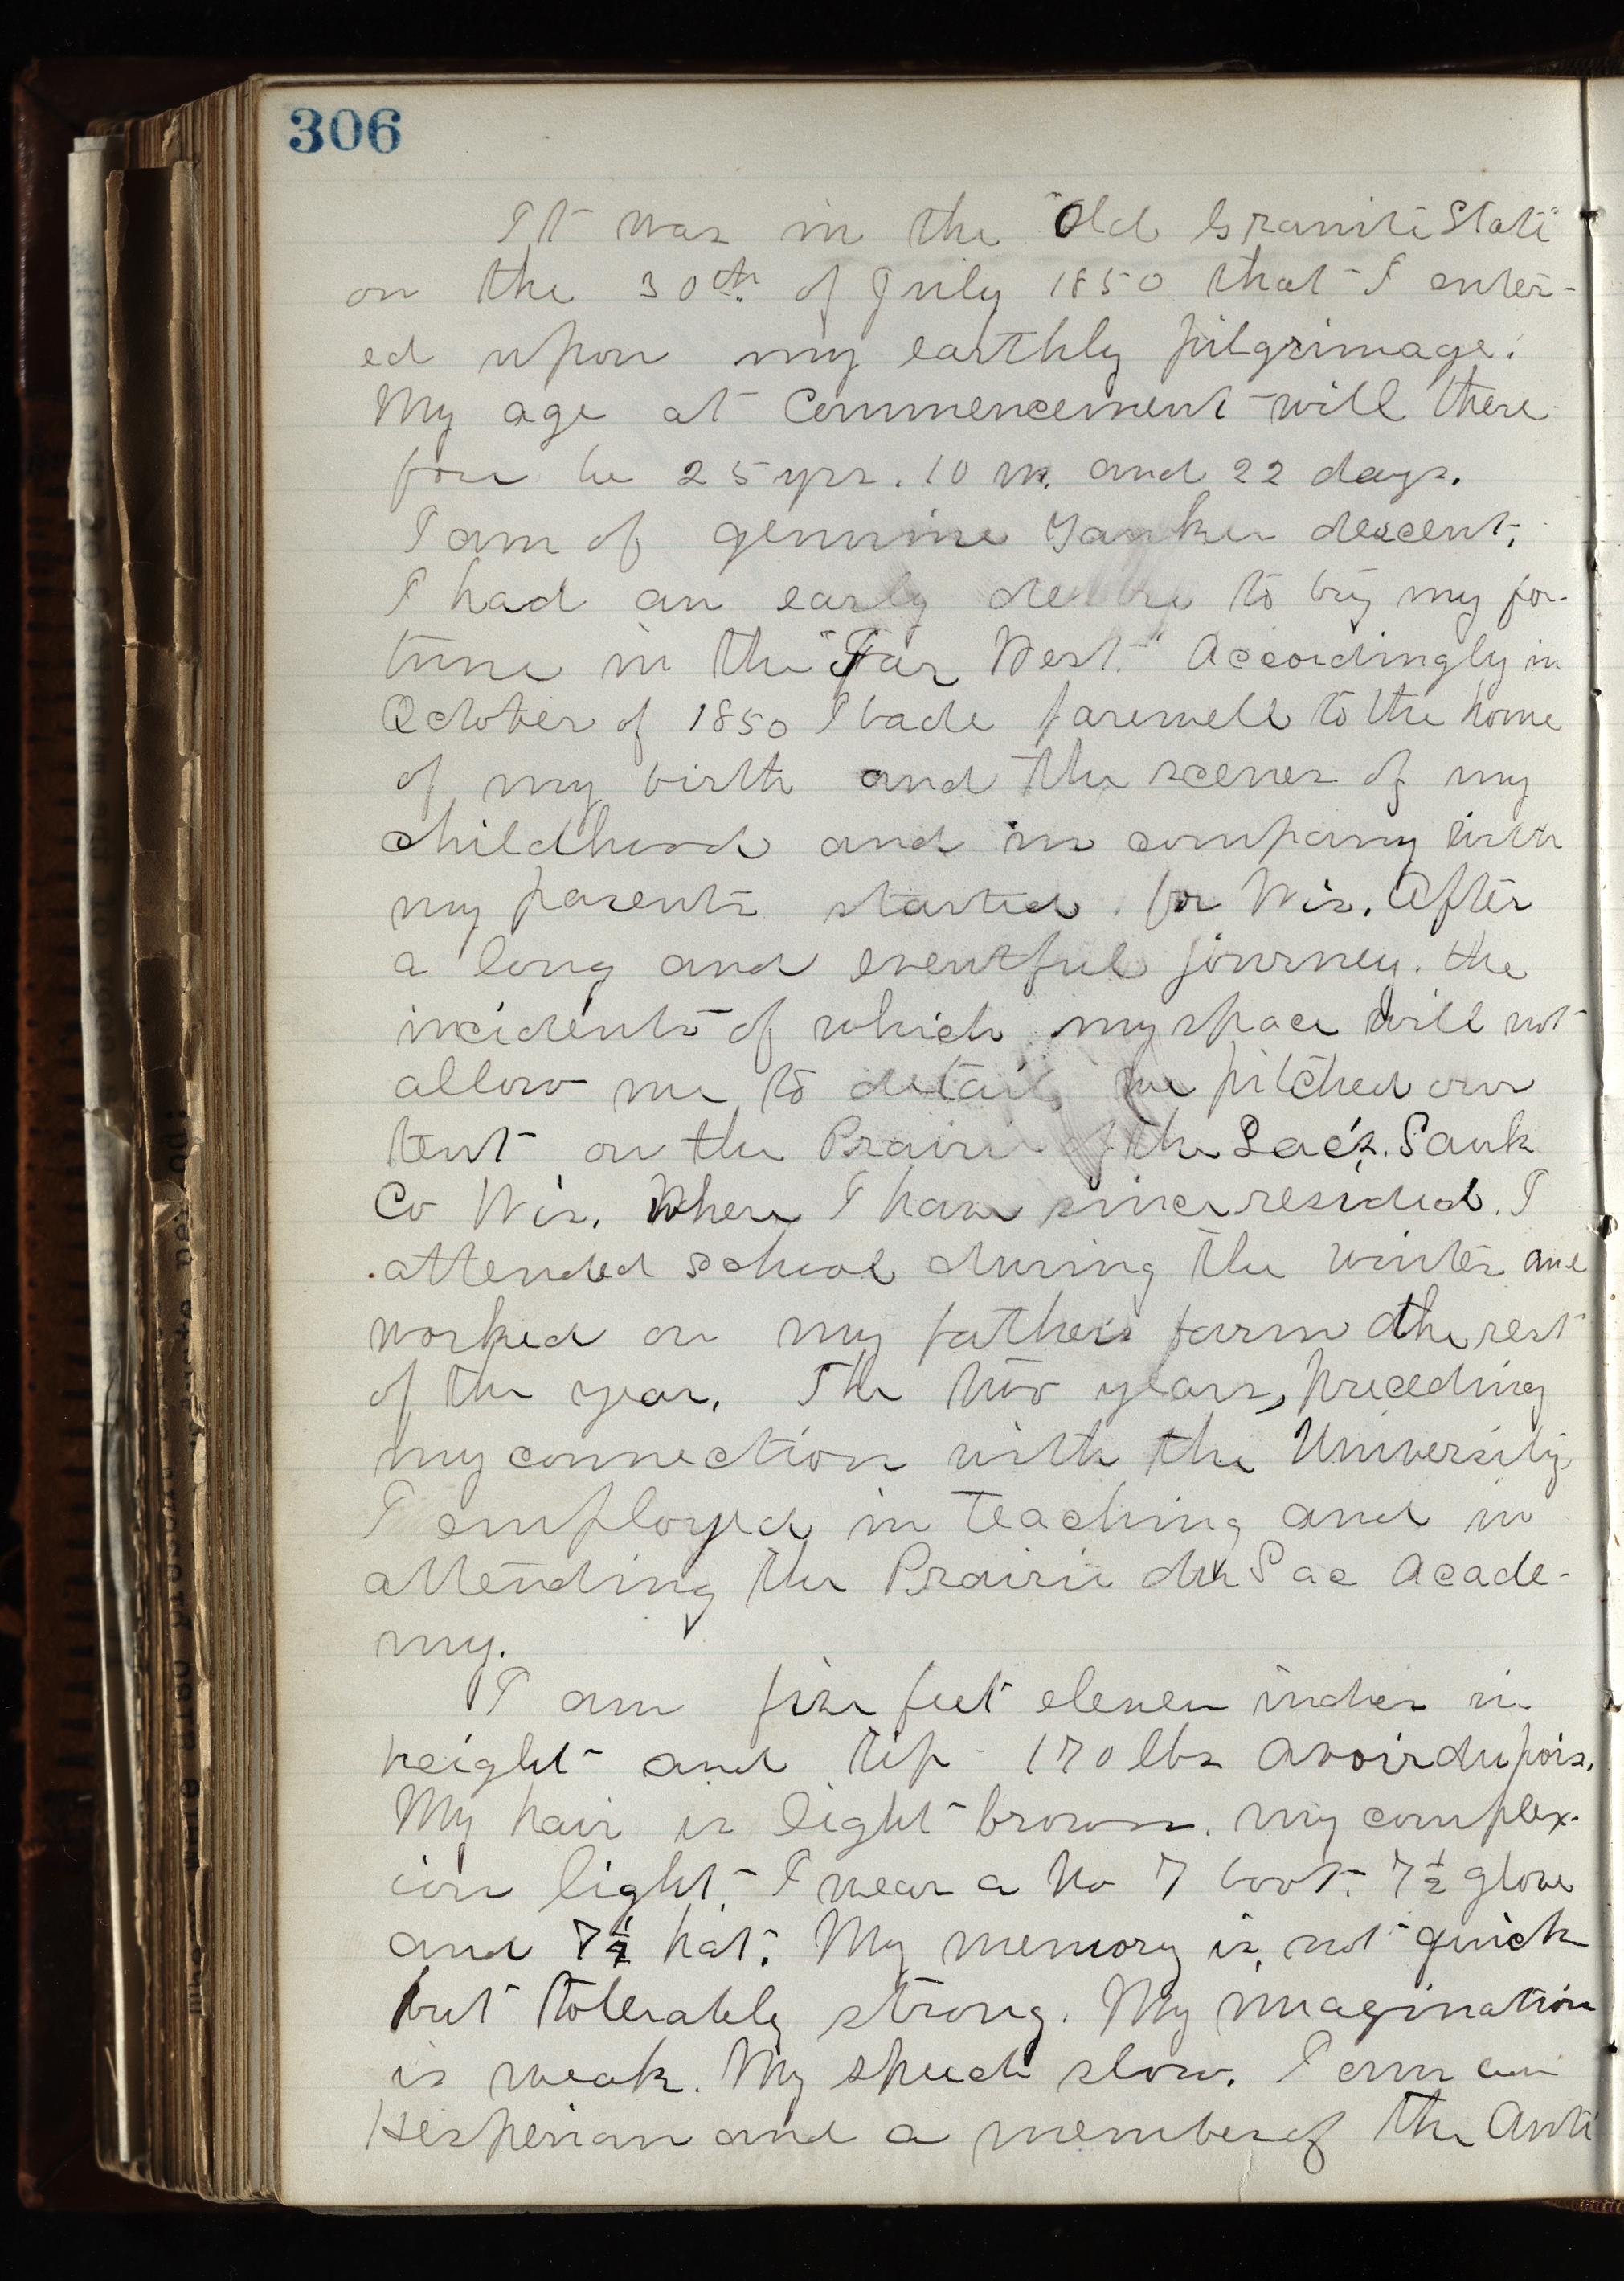 306
It was in the "Old Granite State"
on the 30th. of July 1850 that I enter-
ed upon my earthly pilgrimage.
My age at Commencement will there
fore be 25 yrs. 10 m. and 22 days.
I am of genuine Yankee descent.
I had an early desire to try my for-
tune in the "Far West." Accordingly in
October of 1850 I bade farewell to the home
of my birth and the scenes of my
childhood and in company with
my parents started for Wis. After
a long and eventful journey. the
incidents of which my space will not
allow me to detail, we pitched our
tent on the Prairie of the Sac's. Sauk
Co Wis. Where I have since resided. I
attended school during the winter and
worked on my fathers farm the rest
of the year. The two years, preceding
my connection with the University,
I employed in teaching and in
attending the Prairie du Sac Acade-
my.
I am five feet eleven inches in
height and tip 170 lbs avoirdupois.
My hair is light brown. my complex-
ion light. I wear a No 7 boot. 7½ glove
and 7¼ hat. My memory is not quick
but tolerably strong. My imagination
is weak. My speech slow. I am an
Hesperian and a member of the Anti